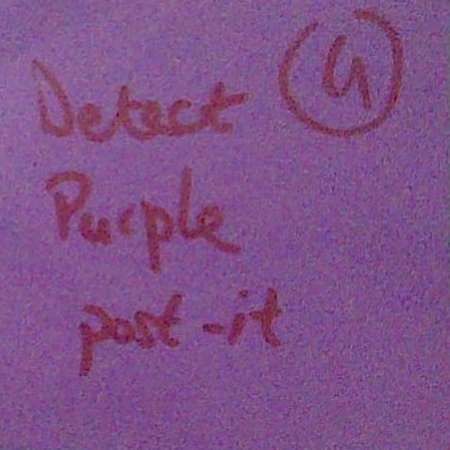 Detect 4
Purple
post-it